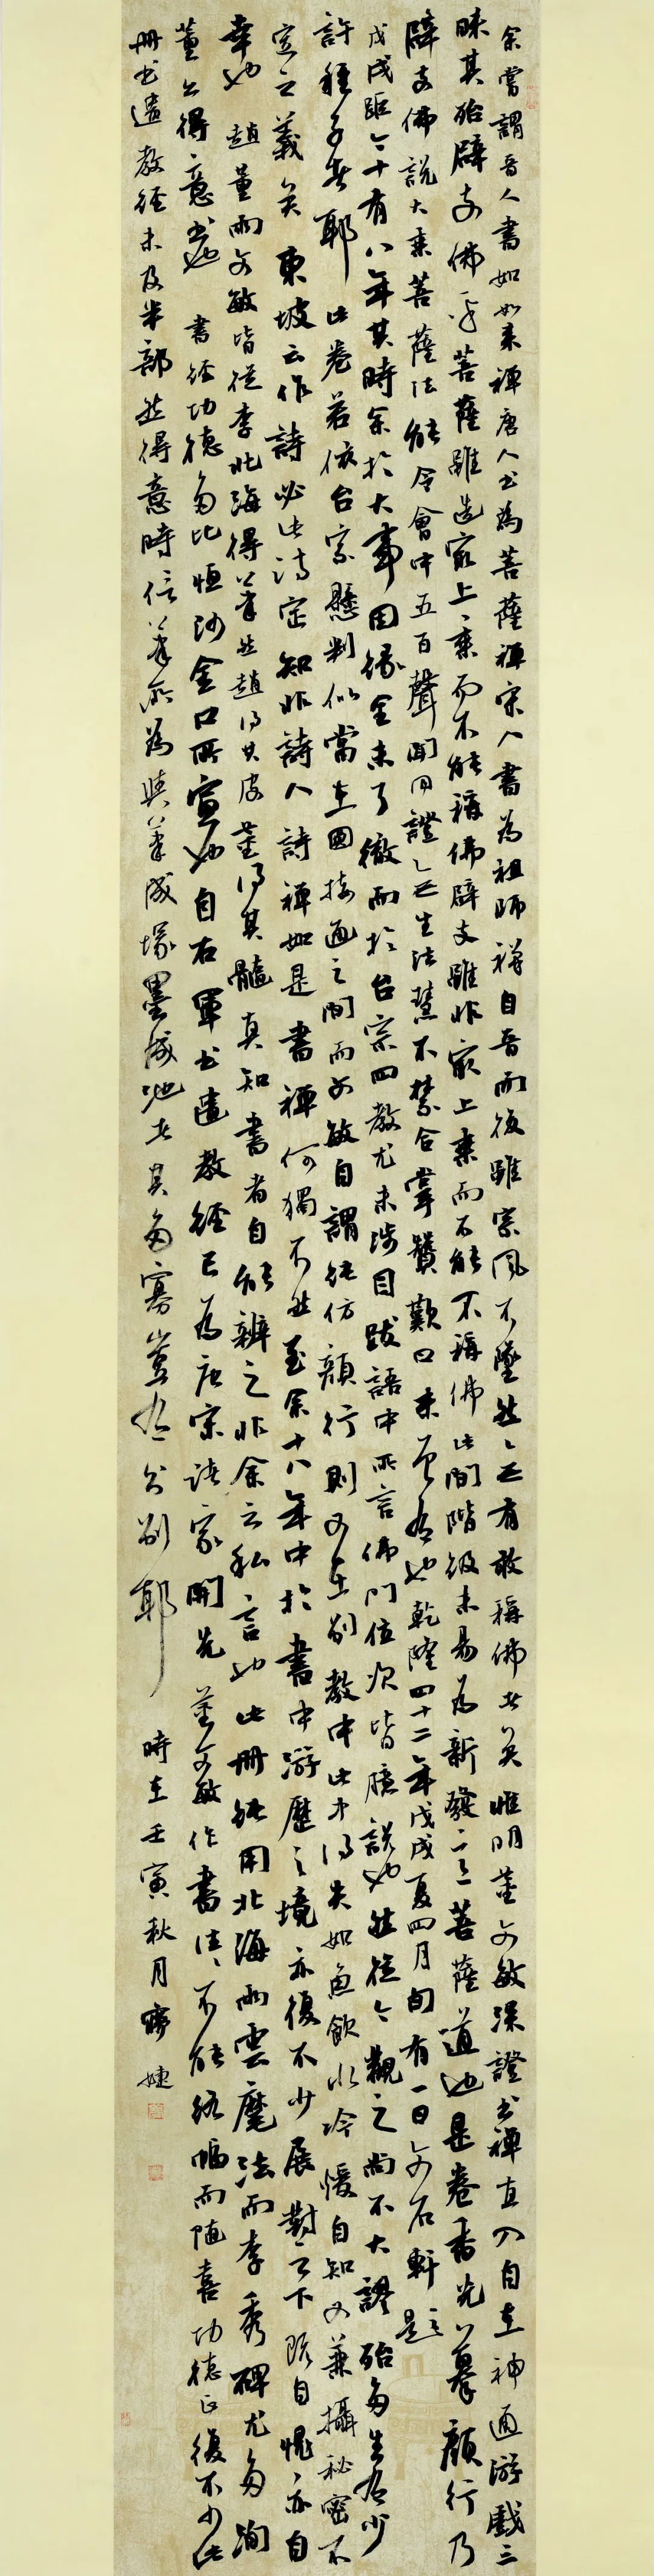 余嘗謂晉人書如如來禪唐人書為菩薩禪宋人書為祖師禪自晉而後雖宗風不墜然無有敢稱佛者矣惟明董文敏深證書禪直入自在神通游戲三
昧其殆辟支佛乎菩薩雖造最上乘而不能稱佛辟支雖非最上乘而不能不稱佛此間階級未易為新發意菩薩道也是卷香光公摹顏行乃
辟支佛說大乘菩薩法能令會中五百聲聞同證無生法慧不禁合掌贊歎曰未曾有也乾隆四十二年戊戌夏四月旬有一日文石軒題
戊戌距今十有八年其時余於大事因緣全未了徹而於台宗四教尤未涉目跋語中所言佛門位次皆臆說也然從今觀之尚不大謬殆多生有少
許種子者耶此卷若依台宗懸判似當在圓接通之間而文敏自謂純仿顏行則又在別教中此中得失如魚飲水冷暖自知又兼攝秘密不
定之義矣東坡云作詩必此詩定知非詩人詩禪如是書禪何獨不然至余十八年中於書中游歷之境亦復不少展對之下既自愧亦自
幸也 趙董兩文敏皆從李北海得筆然趙得其皮董得其髓真知書者自能辨之非余之私言也此冊純用北海兩雲麾法而李秀碑尤多洵
董公得意書也 書經功德多比恒河金口所宣也自右軍書遺教經已為唐宋諸家開先董文敏作書往往不能終幅而隨喜功德正復不少此
冊書遺教經未及半部然得意時信筆所為與筆成塚墨成池者其多寡豈有分別耶 時在壬寅秋月 婕